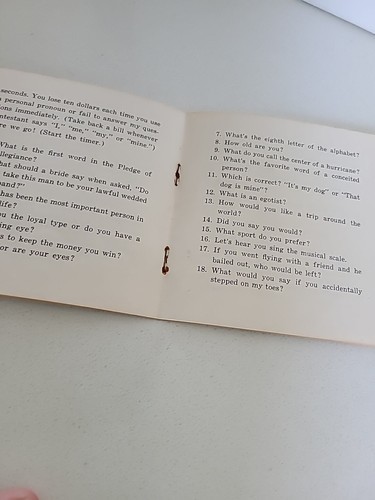 seconds. You lose ten dollars each time you use
personal pronoun or fail to answer my ques-
ons immediately. (Take back a bill whenever
ntestant says "I," "me," "my," or "mine.")
re we go! (Start the timer.)
What is the first word in the Pledge of
llegiance?
hat should a bride say when asked, "Do
take this man to be your lawful wedded
band?"
has been the most important person in
life?
ou the loyal type or do you have a
ing eye?
s to keep the money you win?
or are your eyes?
7. What's the eighth letter of the alphabet?
8. How old are you?
9. What do you call the center of a hurricane?
10. What's the favorite word of a conceited
person?
11. Which is correct? "It's my dog" or "That
dog is mine"?
12. What is an egotist?
13. How would you like a trip around the
world?
14. Did you say you would?
15. What sport do you prefer?
16. Let's hear you sing the musical scale.
17. If you went flying with a friend and he
bailed out, who would be left?
18. What would you say if you accidentally
stepped on my toes?